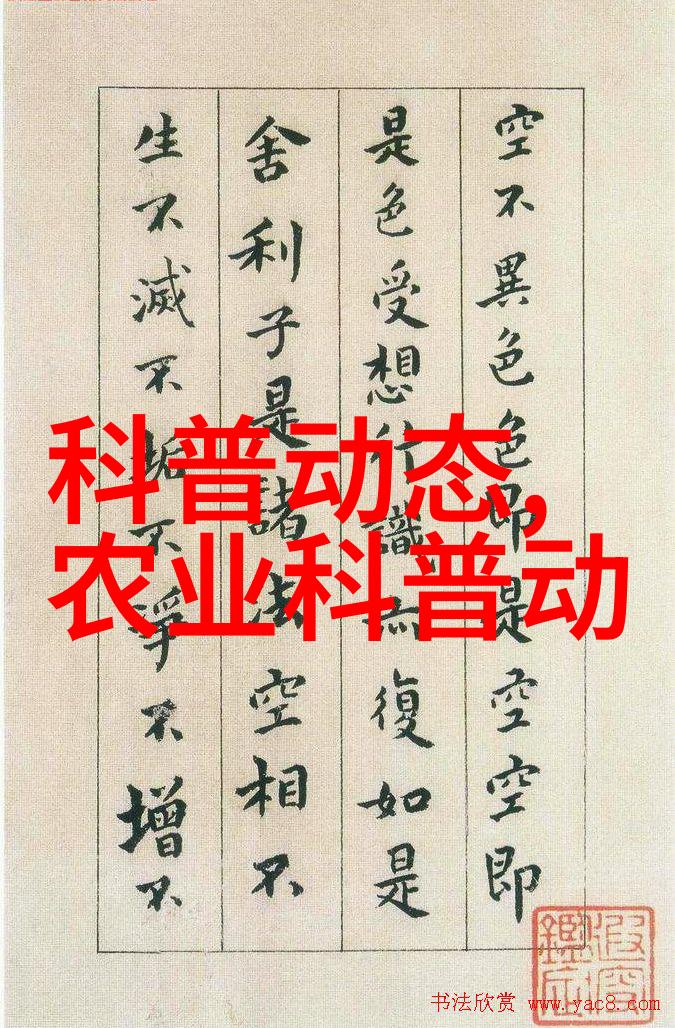 空不異色色即是空空即
是色受想行識亦復如是
舍利子是諸法空相不
生不滅不垢不淨不增不
科普动态,
农业科普动
书法欣赏 www.yac8.com